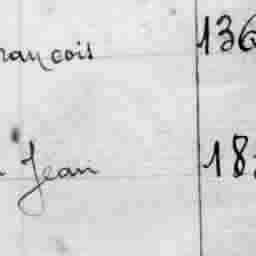 rançois 136
Jean 18